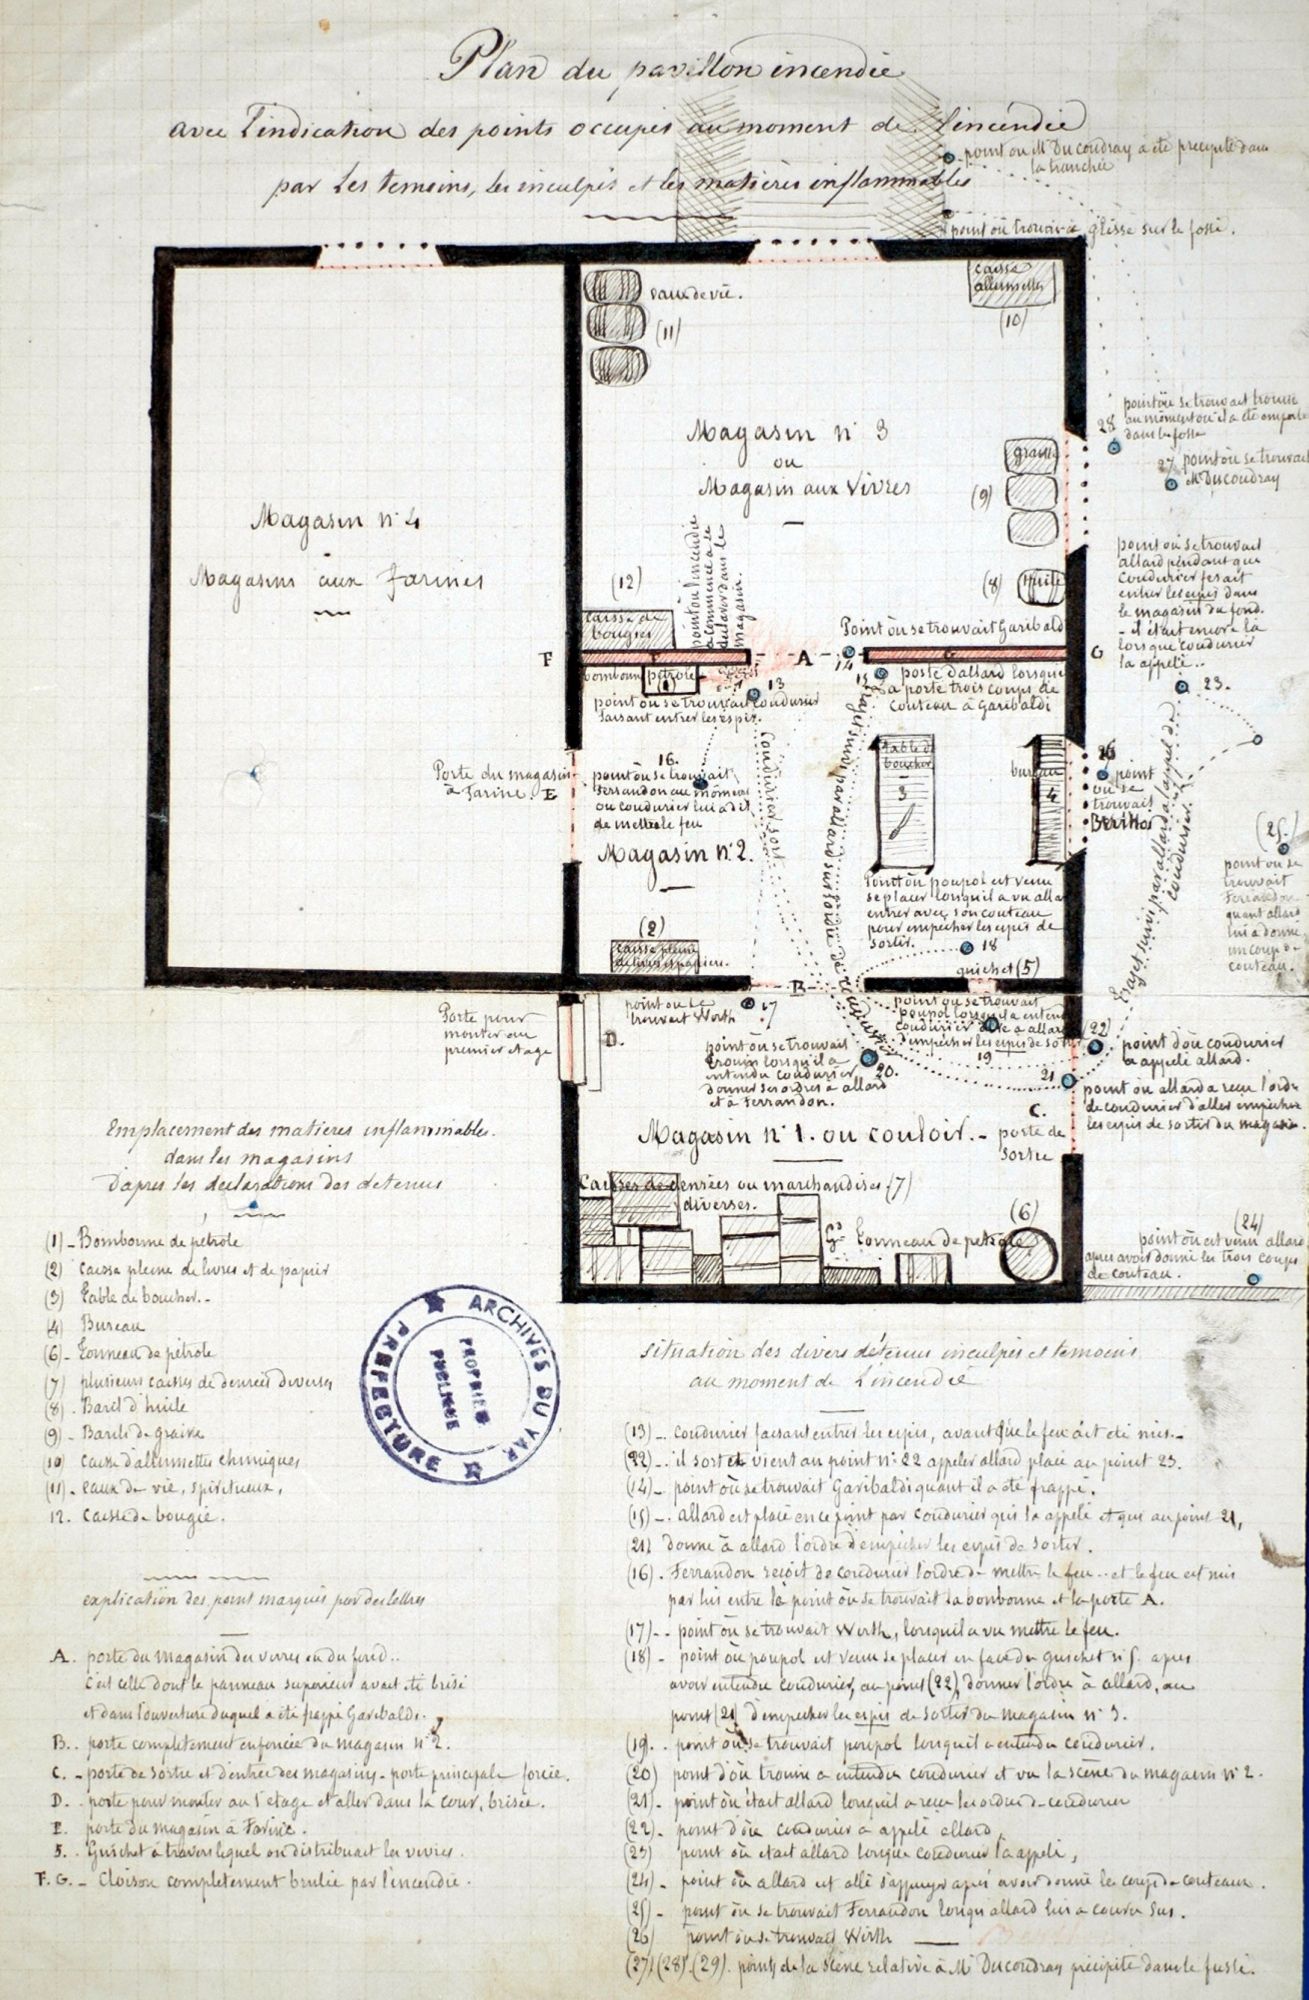 Plan du pavillon incendié
avec l'indication des points occupés au moment de l'incendie
par les temoins, les inculpés et les matières inflammables
point ou Mr Ducoudray a été precipité dans
la tranchée
point où trouin a glissé sur le fossé.
eaux de vie.
(11)
caisse
allumettes
(10)
Magasin n° 3
ou
Magasin aux Vivres
graisse
(9)
(8)
huile
(12)
caisse de
bougies
point où l'incendie
a commencé a se
declarer dans le
magasin.
28
point où se trouvait trouin
au moment où il a été emporté
dans le fossé
27 point où se trouvait
Mr Ducoudray
Magasin n° 4
Magasins aux farines
point où se trouvait
allard pendant que
Coudurier fesait
entrer les espis dans
le magasin du fond.
- il était encore là
lorsque coudurier
la appelé..
23.
Point où se trouvait Garibaldi
F
F
A
14
G
G
bombonne
pétrole
(1)
13
point où se trouvait coudurier
faisant entrer les espis.
15
poste d'allard lorsqu'il
a porté trois coups de
couteau à Garibaldi
Coudurier sort
trajet suivi par allard sur l'ordre de coudurier
trajet suivi par allard a l'appel de
coudurier.
Porte du magasin
à farine. E
16.
point où se trouvait
ferrandon au moment
ou coudurier lui a dit
de mettre le feu
Magasin n° 2.
table de
boucher
3
bureau
4
26
point
où se
trouvait
(25.)
point ou se
trouvait
Ferrandon
quant allard
lui a donné
un coup de
couteau.
Point où poupol est venu
se placer lorsqu'il a vu allard
entrer avec son couteau
pour empêcher les espis de
sortir.
18
(2)
caisse pleine
de livres et papiers.
guichet (5)
B
Porte pour
monter au
premier étage
D.
point ou se
trouvait Werth
17
point ou se trouvait
poupol lorsqu'il a entendu
coudurier dire a allard
d'empêcher les espis de sortir
19
point où se trouvait
trouin lorsqu'il a
entendu coudurier
donner ses ordres à allard
et à Ferrandon.
20.
(22)
point d'où coudurier
a appelé allard.
21
point ou allard a reçu l'ordre
de coudurier d'aller empêcher
les espis de sortir du magasin.
C.
Magasin n° 1. ou couloir. - porte de
sortie
Caisses de denrées ou marchandises (7)
diverses.
(6)
Tonneau de pétrole
(24)
point où est venu allard
apres avoir donné les trois coups
de couteau.
Emplacement des matieres inflammables.
dans les magasins
D'apres les declarations des detenus
(1) - Bombonne de pétrole
(2) caisse pleine de livres et de papier
(3) Table de boucher. -
(4) Bureau
(6) - Tonneau de pétrole
(7) plusieurs caisses de denrées diverses
(8) . Baril d'huile
(9) - Barils de graisse
(10) caisse d'allumettes chimiques
(11) - eaux de vie, spiritueux,
12. Caisse de bougie.
ARCHIVES DU VAR
PREFECTURE
PROPRIÉTÉ
PUBLIQUE
explication des point marqués par des lettres
A. porte du magasin des vivres ou du fond..
C'est celle dont le panneau superieur avait été brisé
et dans l'ouverture duquel a été frappé Garibaldi.
B. . porte completement enfoncée du magasin n° 2.
C. - porte de sortie et d'entrée des magasins - porte principale forcée.
D. . porte pour monter au 1er étage et aller dans la cour, brisée.
E. porte du magasin à Farine.
5. . Guichet à travers lequel on distribuait les vivres.
F. G. - Cloison completement brulée par l'incendie.
situation des divers détenus inculpés et temoins
au moment de l'incendie
(13) - . coudurier faisant entrer les espis, avant que le feu ait été mis. -
(22) - . il sort et vient au point n° 22 appeler allard placé au point 23.
(14) - point où se trouvait Garibaldi quant il a été frappé.
(15) - . allard est placé en ce point par coudurier qui l'a appelé et qui au point 21,
(21) donne à allard l'ordre d'empêcher les espis de sortir.
(16) . Ferrandon reçoit de coudurier l'ordre de mettre le feu.. et le feu est mis
par lui entre le point où se trouvait la bonbonne et la porte A.
(17) - - point où se trouvait Werth, lorsqu'il a vu mettre le feu.
(18) - point où poupol est venu se placer en face du guichet n° 5. apres
avoir entendu coudurier, au point (22), donner l'ordre à allard, au
point (21) d'empêcher les espis de sortir du magasin n° 3.
(19) . . point où se trouvait poupol lorsqu'il a entendu coudurier.
(20) point d'où trouin a entendu coudurier et vu la scène du magasin n° 2.
(21) - point où était allard lorsqu'il a reçu les ordres de coudurier
(22) - point d'où coudurier a appelé allard,
(23) point où était allard lorsque coudurier l'a appelé,
(24) - point où allard est allé s'appuyer après avoir donné les coups de couteaux.
(25) - point où se trouvait Ferrandon lorsqu'allard lui a couru sus.
(26) point où se trouvait Wirth
(27) (28) (29) . points de la scène relative à Mr Ducoudray précipité dans le fossé.